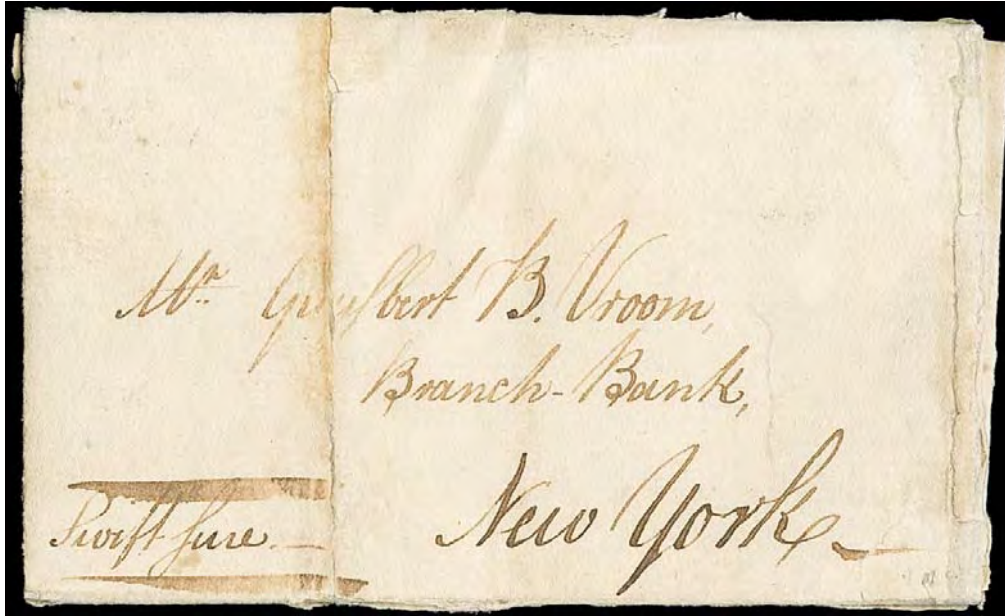 Mr. Guysbert B. Vroom,
Branch-Bank,
New York
Swift sure